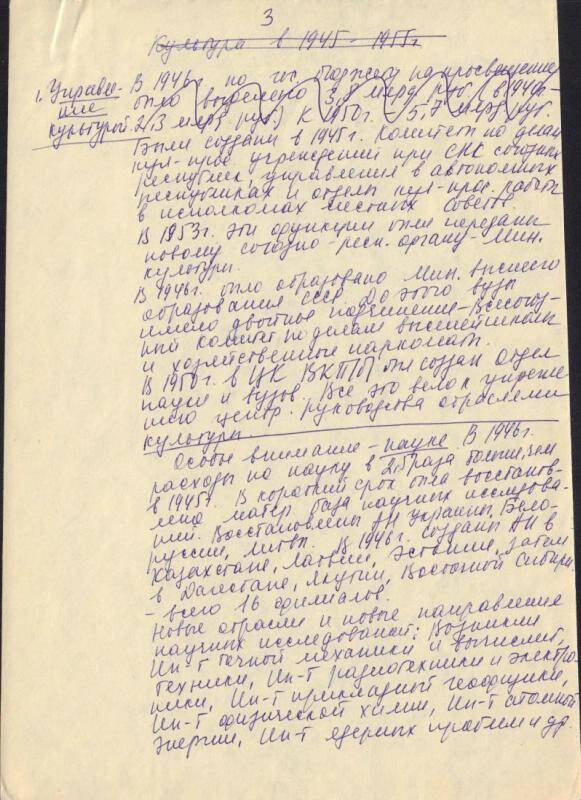 3
Культура в 1945 - 1955г
1. Управле- В 1946г. по гос. бюджету на просвещение
ние было выделено 3,8 млрд руб. (в 1940г.
культурой 2,3 млрд руб.) К 1950г. 5,7 млрд руб.
Были созданы в 1945г. Комитет по делам
кул-прос. учреждений при СНК союзных
республик, управления в автономных
республиках и отделы кул-прос. работы
в исполкомах местных Советов.
В 1953г. эти функции были переданы
новому союзно-респ. органу - Мин.
культуры.
В 1946г. было образовано Мин. высшего
образования СССР. До этого вузы
имели двойное подчинение - Всесоюз-
ный Комитет по делам высшей школы
и хозяйственные наркоматы.
В 1950г. в ЦК ВКП(б) был создан отдел
науки и вузов. Все это вело к укрепле-
нию центр. руководства отраслями
культуры.
Особое внимание - науке. В 1946г.
расходы на науку в 2,5 раза больше, чем
в 1945г. В короткий срок была восстанов-
лена матер. база научных исследова-
ний. Восстановлены АН Украины, Бело-
руссии, Литвы. В 1946г. созданы АН в
Казахстане, Латвии, Эстонии, затем
в Дагестане, Якутии, Восточной Сибири
- всего 16 филиалов.
Новые отрасли и новые направления
научных исследований: Возникли
Ин-т точной механики и вычислит.
техники, Ин-т радиотехники и электро-
ники, Ин-т прикладной геофизики,
Ин-т физической химии, Ин-т атомной
энергии, Ин-т ядерных проблем и др.